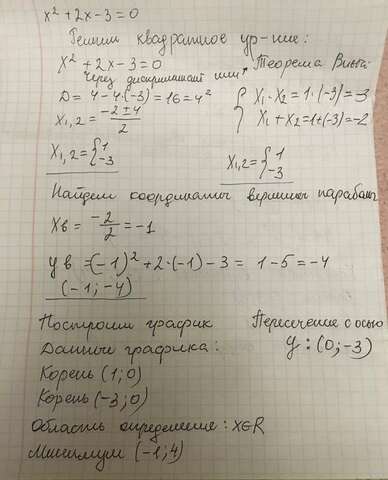 x² + 2x - 3 = 0
Решим квадратное ур-ние:
x² + 2x - 3 = 0
через дискриминант или
Теорема Виета:
D = 4 - 4·(-3) = 16 = 4²
x₁,₂ = (-2 ± 4)/2
{ x₁·x₂ = 1·(-3) = -3
x₁ + x₂ = 1+(-3) = -2
x₁,₂ = { 1
-3
x₁,₂ = { 1
-3
Найдем координаты вершины параболы
xв = -2/2 = -1
yв = (-1)² + 2·(-1) - 3 = 1 - 5 = -4
(-1; -4)
Построим график
Данные графика:
Пересечение с осью
y: (0; -3)
Корень (1; 0)
Корень (-3; 0)
Область определение: x∈R
Минимум (-1; 4)